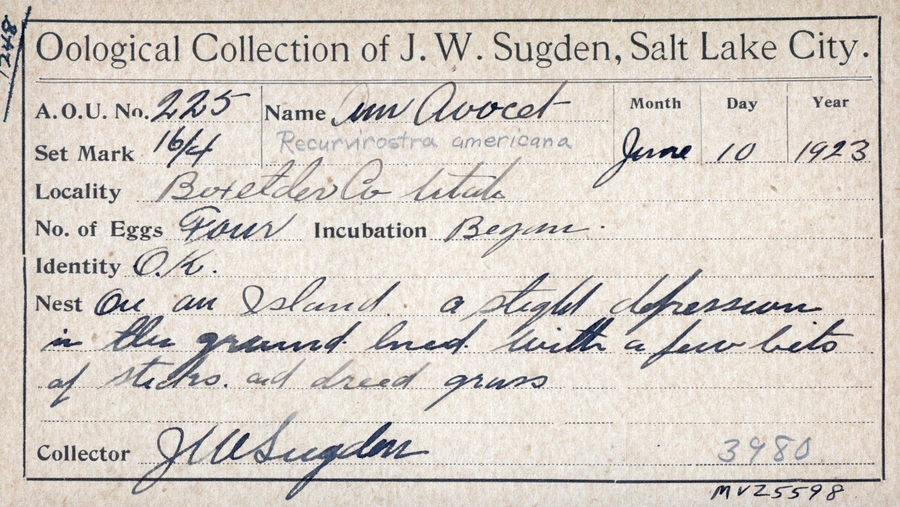 Oological Collection of J. W. Sugden, Salt Lake City.
A.O.U. No. 225 Name Am Avocet Month Day Year
Set Mark 16/4 Recurvirostra americana June 10 1923
Locality Boxelder Co Utah
No. of Eggs Four Incubation Began.
Identity O.K.
Nest On an Island. a slight depression
in the ground lined with a few bits
of sticks. and dried grass
Collector J W Sugden 3980
MVZ5598